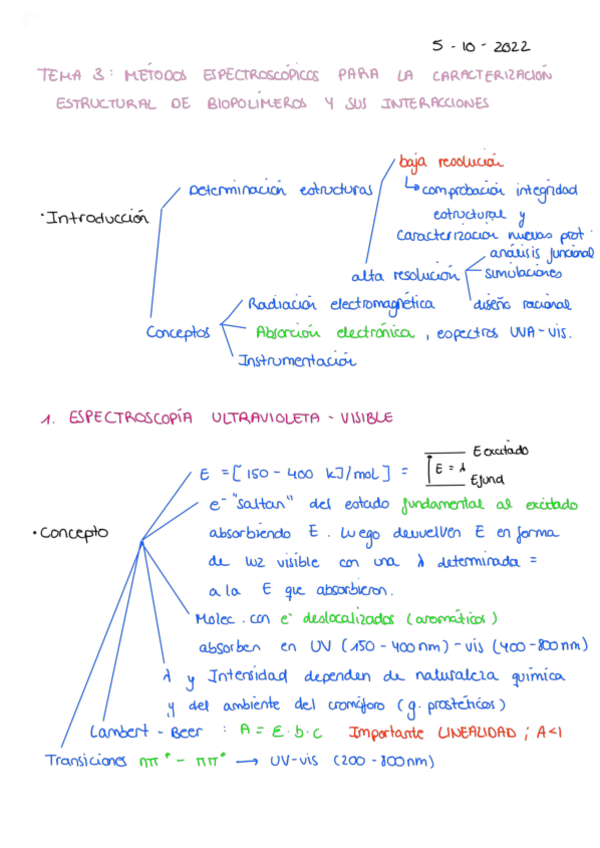 5 - 10 - 2022
TEMA 3: MÉTODOS ESPECTROSCÓPICOS PARA LA CARACTERIZACIÓN
ESTRUCTURAL DE BIOPOLÍMEROS Y SUS INTERACCIONES
baja resolución
Determinación estructuras
↳ comprobación integridad
· Introducción
estructural y
caracterización nuevas prot.
análisis funcional
alta resolución
simulaciones
Radiación electromagnética
diseño racional
Conceptos
Absorción electrónica, espectros UVA-vis.
Instrumentación
1. ESPECTROSCOPÍA ULTRAVIOLETA - VISIBLE
E excitado
E = [150 - 400 kJ/mol] =
E = λ
Efund
e⁻ "saltan" del estado fundamental al excitado
· Concepto
absorbiendo E. Luego devuelven E en forma
de luz visible con una λ determinada =
a la E que absorbieron.
Molec. con e⁻ deslocalizados (aromáticos)
absorben en UV (150 - 400 nm) - vis (400 - 800 nm)
λ y Intensidad dependen de naturaleza química
y del ambiente del cromóforo (g. prostéticos)
Lambert - Beer : A = ε · b · c Importante LINEALIDAD ; A<1
Transiciones nπ* - ππ* → UV-vis (200 - 800 nm)